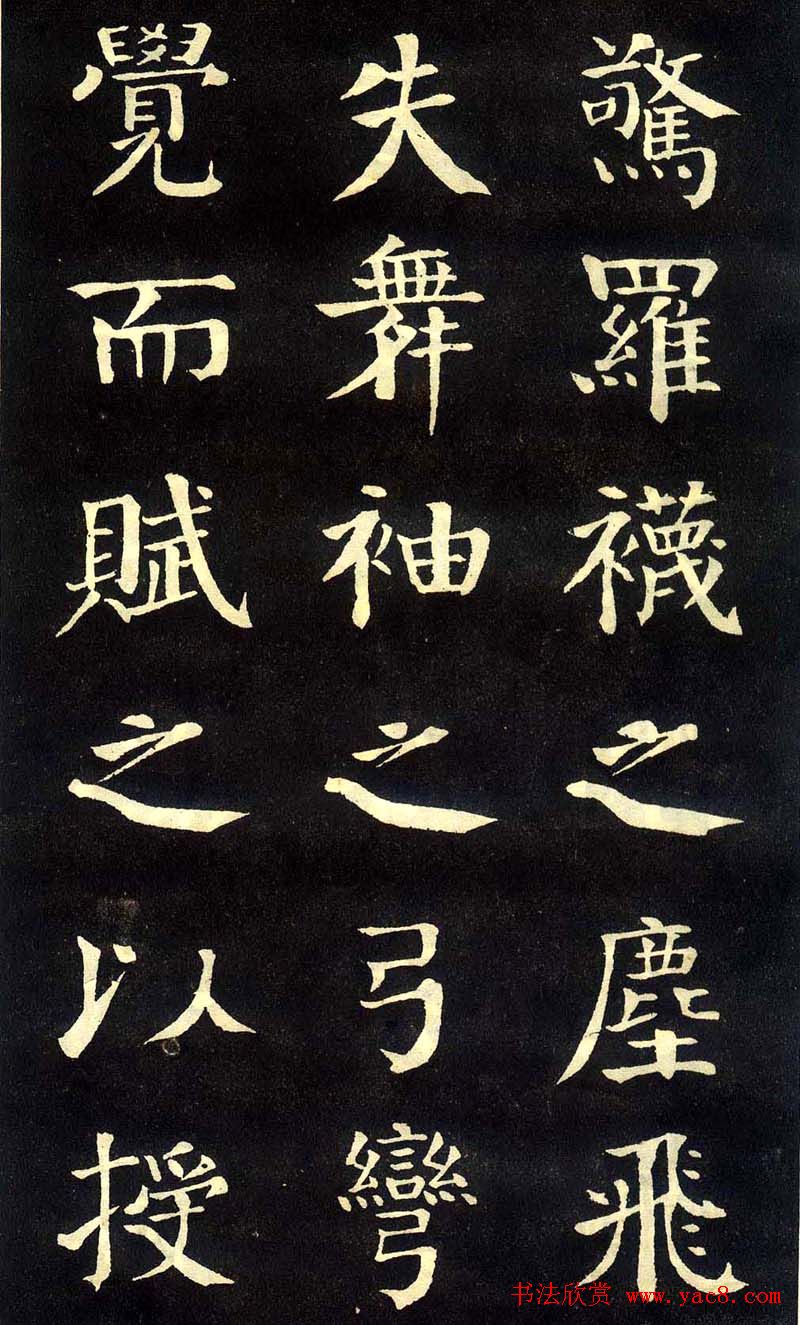 驚羅襪之塵飛
失舞袖之弓彎
覺而賦之以授
书法欣赏 www.yac8.com